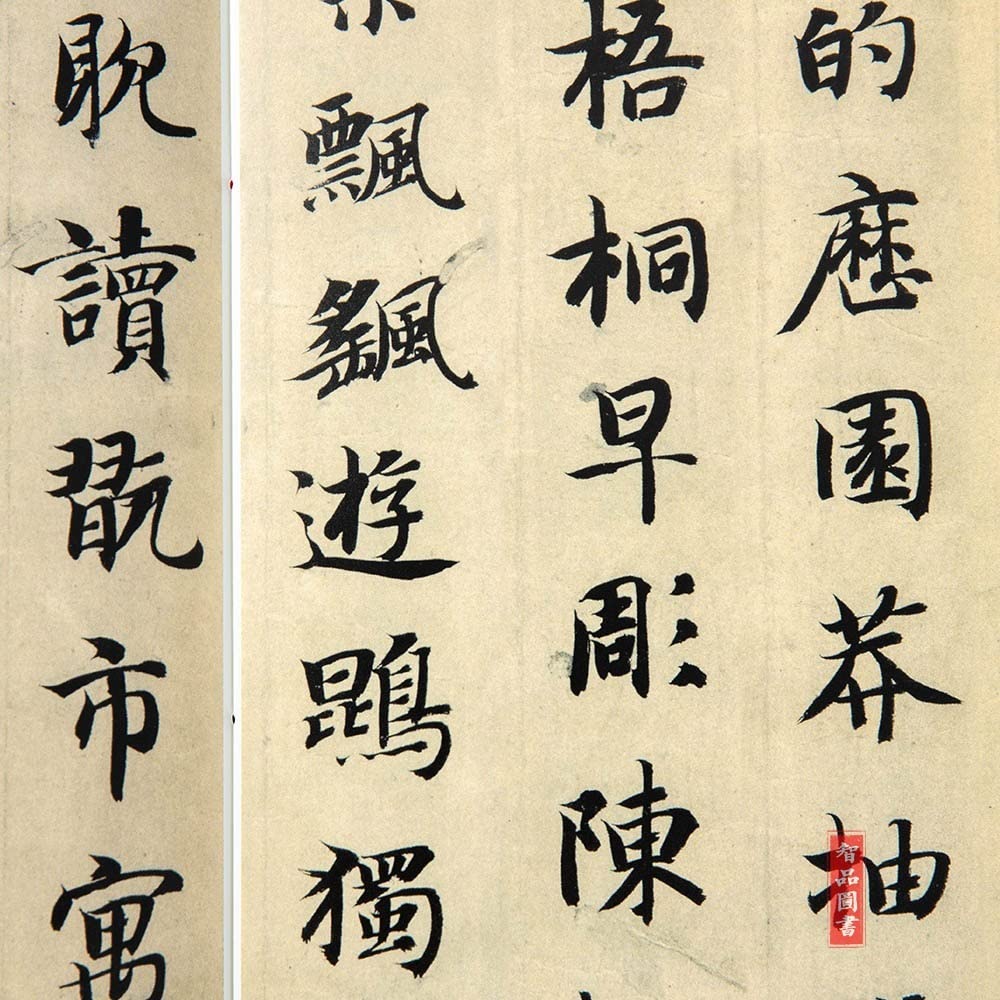 的歷園莽抽
梧桐早彫陳
飄颻遊鵾獨
耽讀翫市寓
智品圖書